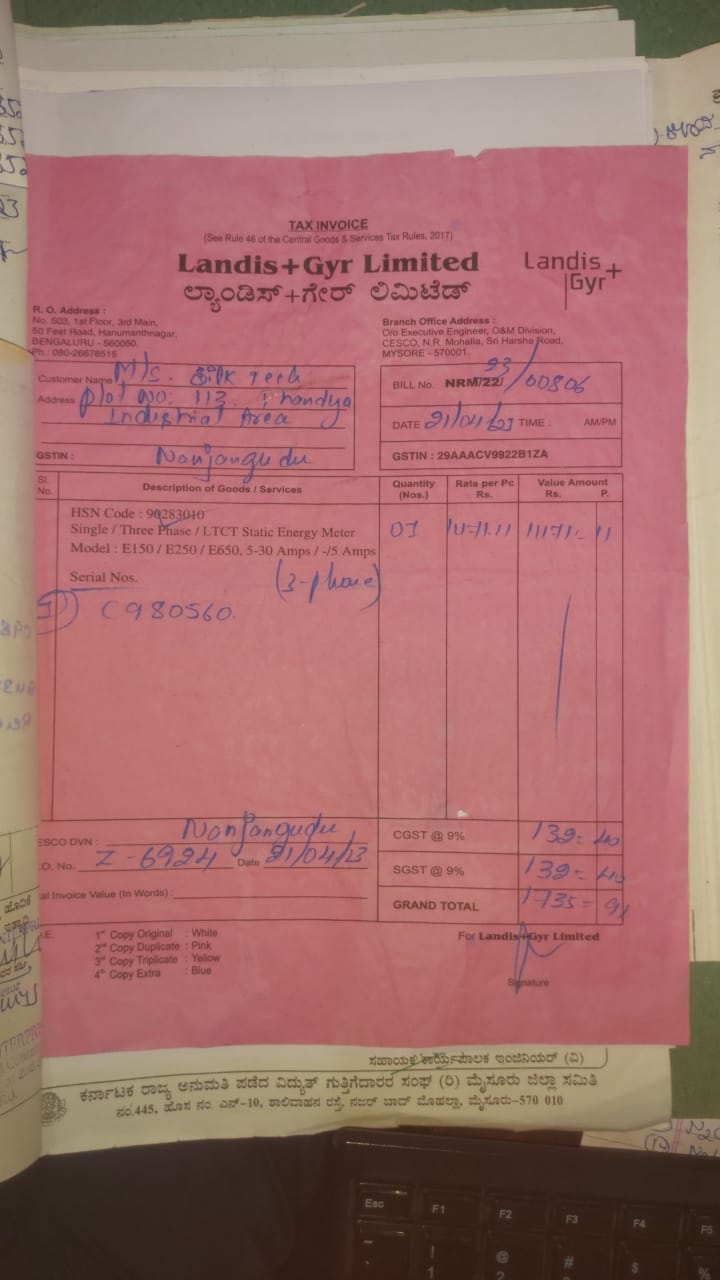 TAX INVOICE
(See Rule 46 of the Central Goods & Services Tax Rules, 2017)
Landis+Gyr Limited
ಲ್ಯಾಂಡಿಸ್+ಗೇರ್ ಲಿಮಿಟೆಡ್
Landis+
Gyr
R. O. Address :
No. 503, 1st Floor, 3rd Main,
50 Feet Road, Hanumanthnagar,
BENGALURU - 560050.
Ph : 080-26678515
Branch Office Address :
O/o Executive Engineer, O&M Division,
CESCO, N.R. Mohalla, Sri Harsha Road,
MYSORE - 570001.
Customer Name M/s. Tech
Address Plot No: 113,
Industrial Area
GSTIN : Nanjangudu
BILL No. NRM/22/23/00806
DATE 21/04/23 TIME : AM/PM
GSTIN : 29AAACV9922B1ZA
Sl. No. Description of Goods / Services Quantity (Nos.) Rate per Pc Rs. Value Amount Rs. P.
HSN Code : 90283010
Single / Three Phase / LTCT Static Energy Meter 01
Model : E150 / E250 / E650, 5-30 Amps / -/5 Amps
Serial Nos. (3-phase)
1) C980560.
ESCO DVN : Nanjangudu
.O. No. Z-6924 Date 21/04/23
al Invoice Value (In Words) :
CGST @ 9% 132=40
SGST @ 9% 132=40
GRAND TOTAL 1735=91
1st Copy Original : White
2nd Copy Duplicate : Pink
3rd Copy Triplicate : Yellow
4th Copy Extra : Blue
For Landis+Gyr Limited
Signature
ಸಹಾಯಕ ಕಾರ್ಯಪಾಲಕ ಇಂಜಿನಿಯರ್ (ವಿ)
ಕರ್ನಾಟಕ ರಾಜ್ಯ ಅನುಮತಿ ಪಡೆದ ವಿದ್ಯುತ್ ಗುತ್ತಿಗೆದಾರರ ಸಂಘ (ರಿ) ಮೈಸೂರು ಜಿಲ್ಲಾ ಸಮಿತಿ
ನಂ.445, ಹೊಸ ನಂ. ಎನ್-10, ಶಾಲಿವಾಹನ ರಸ್ತೆ, ನಜರ್ ಬಾದ್ ಮೊಹಲ್ಲಾ, ಮೈಸೂರು-570 010
Esc F1 F2 F3 F4 F5
! @ # $ %
2